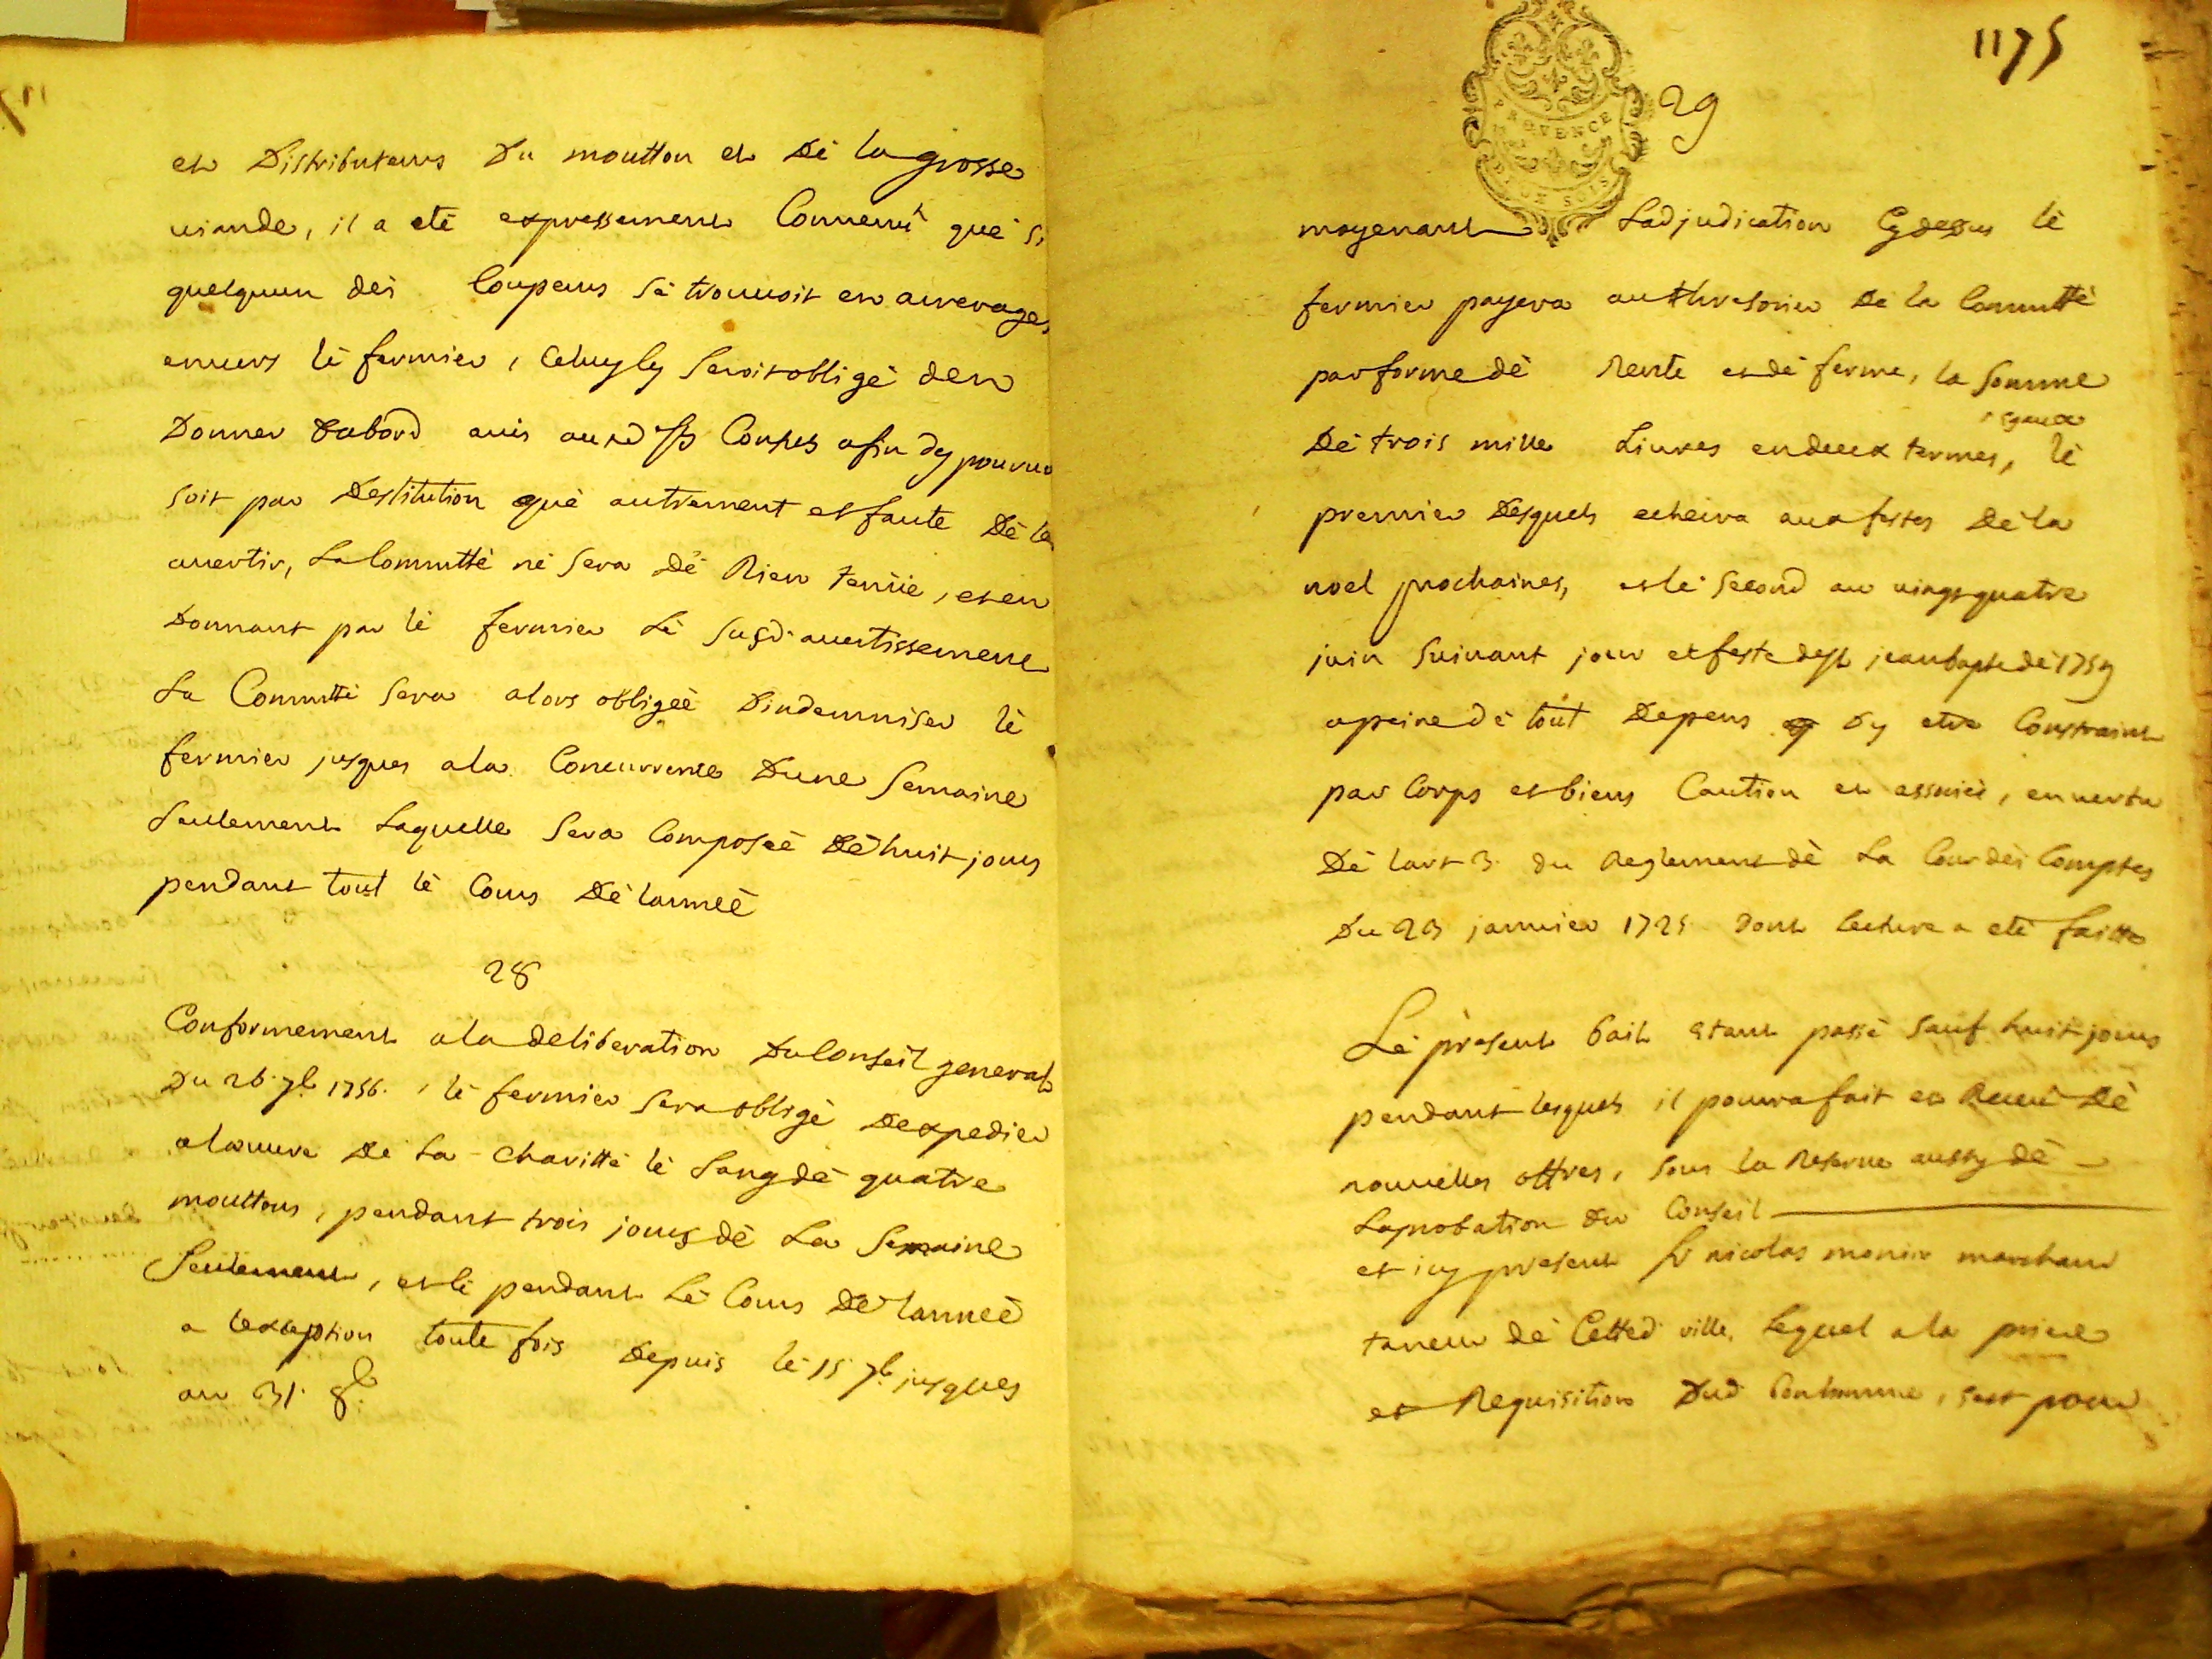 et Distributeurs Du moutton et Dé la grosse
uiande, il a eté expressement Conuenu qué si
quelquun dés Coupeurs sé trouuoit en arrerages
enuers lé fermier, Celuycy seroit obligé den
Donner Dabord auis auxd. Srs Consuls afin dy pouruo
soit par Destitution qué autrement et faute Dé les
auertir, La Commtté né sera Dé Rien tenüe, et en
Donnant par lé fermier Lé susd. auertissement
La Commtté sera alors obligéé Dindemniser lé
fermier jusques a la Concurrence Dune Semaine
seulement Laquelle sera Composéé Dé huit jours
pendant tout lé Cours Dé lannéé
28
Conformement a la deliberation Du Conseil general
Du 26. 7b. 1756., lé fermier sera obligé Dexpedier
a l'œuure Dé La Charitté lé Sang dé quatre
mouttons, pendant trois jours dé La Semaine
Seulement, et cé pendant Lé Cours Dé lannéé
a lexception toute fois Depuis lé 15 7b. jusques
au 31. 8b.
1175
29
PROVENCE
DEUX SOLS
moyenant Ladjudication Cy dessus lé
fermier payera au thresorier Dé la Commtté
par forme dé Rente et dé ferme, la somme
egaux
Dé trois mille Liures en deux termes, lé
premier Desquels echeira aux festes Dé la
noel prochaines, et lé Second au vingt quatre
juin Suiuant jour et feste de St jean bapte dé 1759
a peine dé tout Depens Dy etre Constraint
par Corps et biens Caution et associé, en uertu
Dé lart 3. du Reglement dé La Cour dés Comptes
Du 23 januier 1725 Dont lecture a eté faitte
Lé présent bail etant passé sauf huit jours
pendant lesquels il poura fait et Receu Dé
nouuelles offres, sous la Reserue aussy dé
Laprobation du Conseil
et icy present Sr nicolas monier marchand
taneur dé Cetted. ville, Lequel a la priere
et Requisition Dud. Bonhomme, sest pour